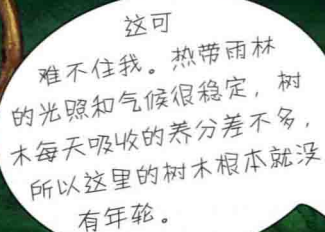 这可
难不住我。热带雨林
的光照和气候很稳定，树
木每天吸收的养分差不多，
所以这里的树木根本就没
有年轮。